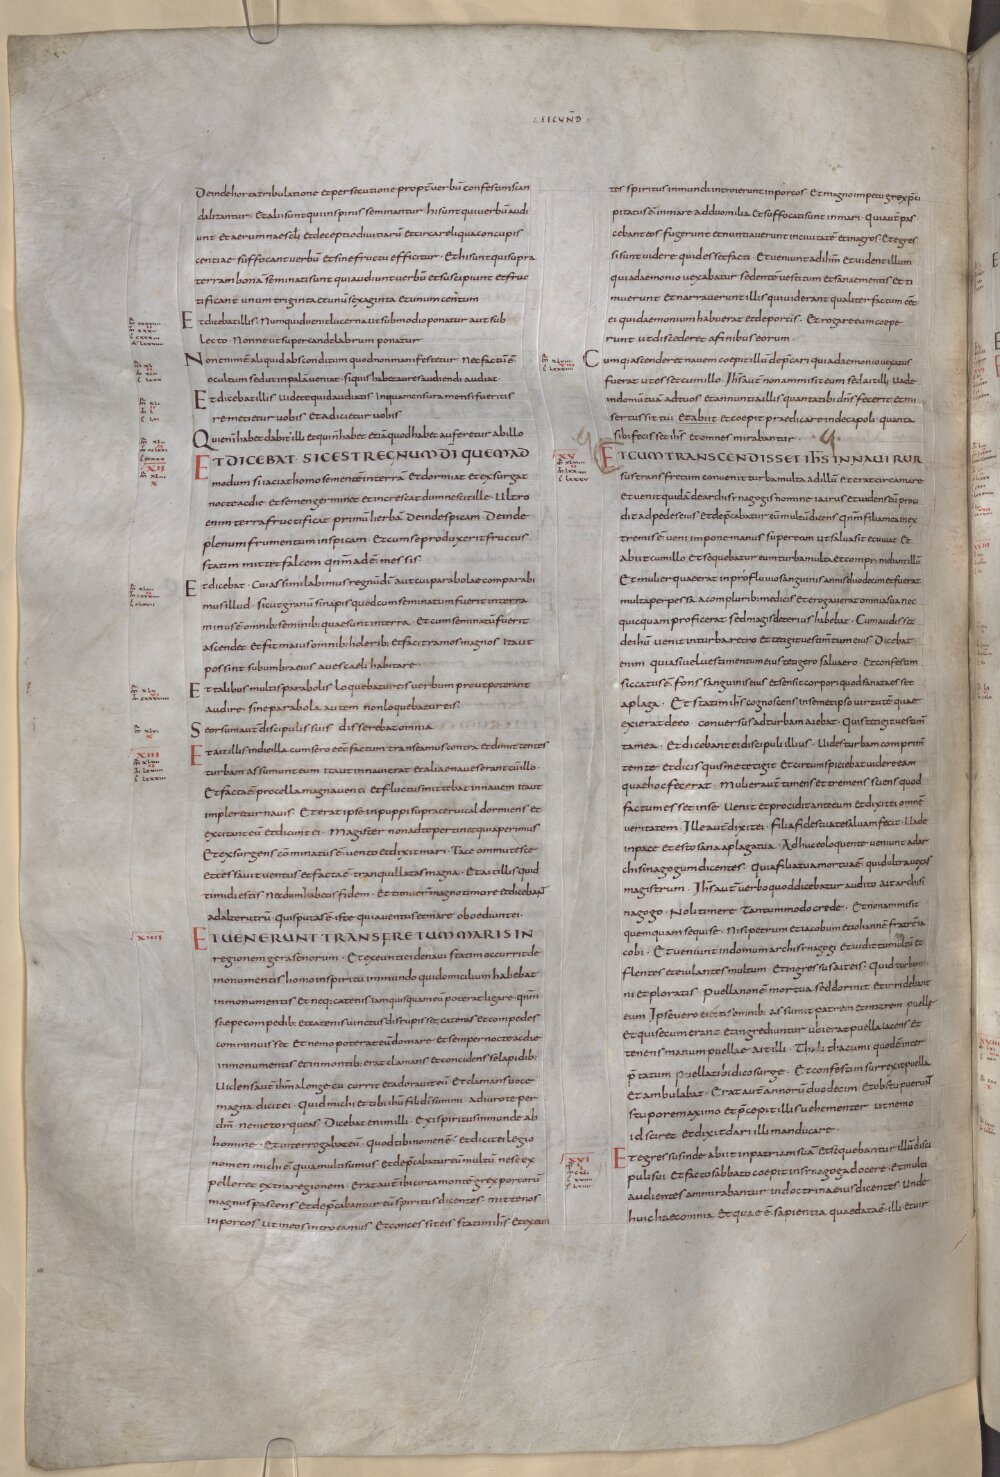 : SECUND :
Deinde horta tribulatione et persecutione propt verbu confestim scan
dalizantur. Et alii sunt qui inspinis seminantur. hi sunt qui verbu audi
unt et aerumnae scli et deceptio divitiaru et circa reliqua concupis
centiae suffocant verbu et sine fructu efficitur. Et hi sunt qui supra
terram bona seminati sunt qui audiunt verbu et suscipiunt et fruc
tificant unum triginta et unu sexaginta et unum centum
Et dicebat illis. Numquid venit lucerna ut submodio ponatur aut sub
lecto. Nonne ut super candelabrum ponatur
Non enim e aliquid absconditum quod non manifestetur. Nec factu e
ocultum sed ut inpala veniat. siquis habet aures audiendi audiat
Et dicebat illis. Videte quid audiatis. Inqua mensura mensi fueritis
remetietur vobis et adicietur vobis
Qui eni habet dabit illi et qui n habet etia quod habet auferetur ab illo
ET DICEBAT. SIC EST REGNUM DI QUEMAD
modum si iaciat homo semente interra. Et dormiat et exsurgat
nocte ac die et semen germinet et increscat dum nescit ille. Ultro
enim terra fructificat primu herba. Deinde spicam. Deinde
plenum frumentum inspicam. Et cum se produxerit fructus
statim mittit falcem qnm ade messis
Et dicebat. Cui assimilabimus regnu di. aut cui parabolae compara bi
mus illud. sicut granu sinapis quod cum seminatum fuerit interra
minus e omnib; seminib; quae sunt interra. Et cum seminatu fuerit
ascendet et fit maius omnib; holerib; et facit ramos magnos. Ita ut
possint sub umbra eius aves caeli habitare
Et talibus multis parabolis loquebatur eis verbum prout poterant
audire. sine parabola autem non loquebatur eis.
Seorsum aut discipulis suis disserebat omnia
Et ait illis in die illa cum sero eet factum transeamus contra et dimittentes
turbam assumunt eum. Ita ut in navi erat et aliae naves erant cu illo.
Et facta e procella magna venti et fluctus mittebat in navem ita ut
impleretur navis. Et erat ipse inpuppi supra cervical dormiens et
excitant eu et dicunt ei. Magister non ad te pertinet quia perimus
Et exsurgens comminatus e vento et dixit mari. Tace ommutesce
et cessavit ventus et facta e tranquillitas magna. Et ait illis quid
timidi estis. Necdum habetis fidem. Et timuer magno timore et dicebant
ad alterutru. Quis putas e iste quia ventus et mare oboediunt ei.
ET VENERUNT TRANS FRETUM MARIS IN
regionem gerasenorum. Et exeunti ei de navi statim occurrit de
monumentis homo inspiritu inmundo qui domicilium habebat
in monumentis et neq; catenis iam quisquam eu poterat ligare. qnm
saepe compedib; et catenis vinctus disrupisset catenas et compedes
comminuisset. Et nemo poterat eu domare. Et semper nocte ac die
in monumentis et in montib; erat clamans et concidens se lapidib;
Videns aut ihm a longe cucurrit et adoravit eu. Et clamans voce
magna dicit ei. Quid michi et tibi ihu fili di summi. adiuro te per
dm. ne me torqueas. Dicebat enim illi. Exi spiritus inmunde ab
homine. Et interrogabat eu. Quod tibi nomen e. Et dicit ei legio
nomen michi e quia multi sumus. Et depcabatur eu multu. ne se ex
pelleret extra regionem. Erat aut ibi circa monte grex porcoru
magnus pascens. Et depcabantur eu spiritus dicentes. mitte nos
in porcos ut in eos introeamus. Et concessit eis statim ihs. Et exeun
tes spiritus inmundi introierunt in porcos. Et magno impetu grex pci
pitatus e in mare ad duo milia. Et suffocati sunt in mari. Qui aut pas
cebant eos fugerunt et nuntiaverunt in civitate et in agros. Et egres
si sunt videre quid esset facti. Et veniunt ad ihm. Et vident illum
qui a daemonio vexabatur sedente vestitum et sanae mentis. Et ti
muerunt. Et narraverunt illis qui viderant qualiter factum eet
ei qui daemonium habuerat et de porcis. Et rogare eum coepe
runt ut discederet a finibus eorum.
Cumq; ascenderet navem coepit illu depcari qui a daemonio vexatus
fuerat ut esset cum illo. Ihs aut non ammisit eum sed ait illi. Vade
in domu tua ad tuos et annuntia illis quanta tibi dns fecerit et mi
sertus sit tui. Et abiit et coepit praedicare in decapoli. quanta
sibi fecisset ihs. et omnes mirabantur.
ET CUM TRANSCENDISSET IHS IN NAVI RUR
sus trans fretum convenit turba multa ad illu. et erat circa mare
et venit quida de archisinagogis nomine iairus et videns eu proci
dit ad pedes eius. et depcabatur eu multu dicens. Qnm filia mea in ex
tremis e. veni impone manus super eam ut salva sit et vivat. Et
abiit cum illo. Et sequebatur eum turba multa et comprimebant illu
Et mulier quae erat in profluvio sanguinis annis duodecim et fuerat
multa perpessa a compluribus medicis et erogaverat omnia sua nec
quicquam proficerat sed magis deterius habebat. Cum audisset
de ihu venit in turba retro et tetigit vestimtum eius. Dicebat
enim quia si vel vestimentum eius tetigero salva ero. Et confestim
siccatus e fons sanguinis eius et sensit corpori quod sanata esset
a plaga. Et statim ihs cognoscens in semetipso virtute quae
exierat de eo conversus ad turbam aiebat. Quis tetigit vestim
ta mea. Et dicebant ei discipuli illius. Vides turbam comprim
tem te. et dicis quis me tetigit. Et circumspiciebat videre eam
quae hoc fecerat. Mulier aut timens et tremens sciens quod
factum esset in se. Venit et procidit ante eum et dixit ei omne
veritatem. Ille aut dixit ei. Filia fides tua te salvam fecit. Vade
in pace et esto sana a plaga tua. Adhuc eo loquente veniunt ad ar
chisinagogum dicentes. Quia filia tua mortua e quid ultra vexas
magistrum. Ihs aut verbo quod dicebatur audito. ait archisi
nagogo. Noli timere tantummodo crede. Et non ammisit
quemquam sequi se. Nisi petrum et iacobum et iohanne fratre ia
cobi. Et veniunt in domum archisinagogi et vidit tumultu et
flentes et eiulantes multum. Et ingressus ait eis. Quid turbami
ni et ploratis. Puella non e mortua sed dormit. Et irridebant
eum. Ipse vero eiectis omnib; assumit patrem et matrem puelle
et qui secum erant. et ingrediuntur ubi erat puella iacens. et
tenens manum puellae. ait illi. Thabithacumi quod e inter
ptatum puella tibi dico surge. Et confestim surrexit puella
et ambulabat. Erat aut annoru duodecim. Et obstupuerunt
stupore maximo et pcepit illis vehementer ut nemo
id sciret et dixit dari illi manducare.
Et egressus inde abiit in patriam sua. Et sequebantur illu disci
puli sui. et facto sabbato coepit in sinagoga docere. Et multi
audientes ammirabantur in doctrina eius dicentes. Unde
huic haec omnia. Et quae e sapientia quae data e illi. et vir
XII
XIII
XIIII
XV
XVI